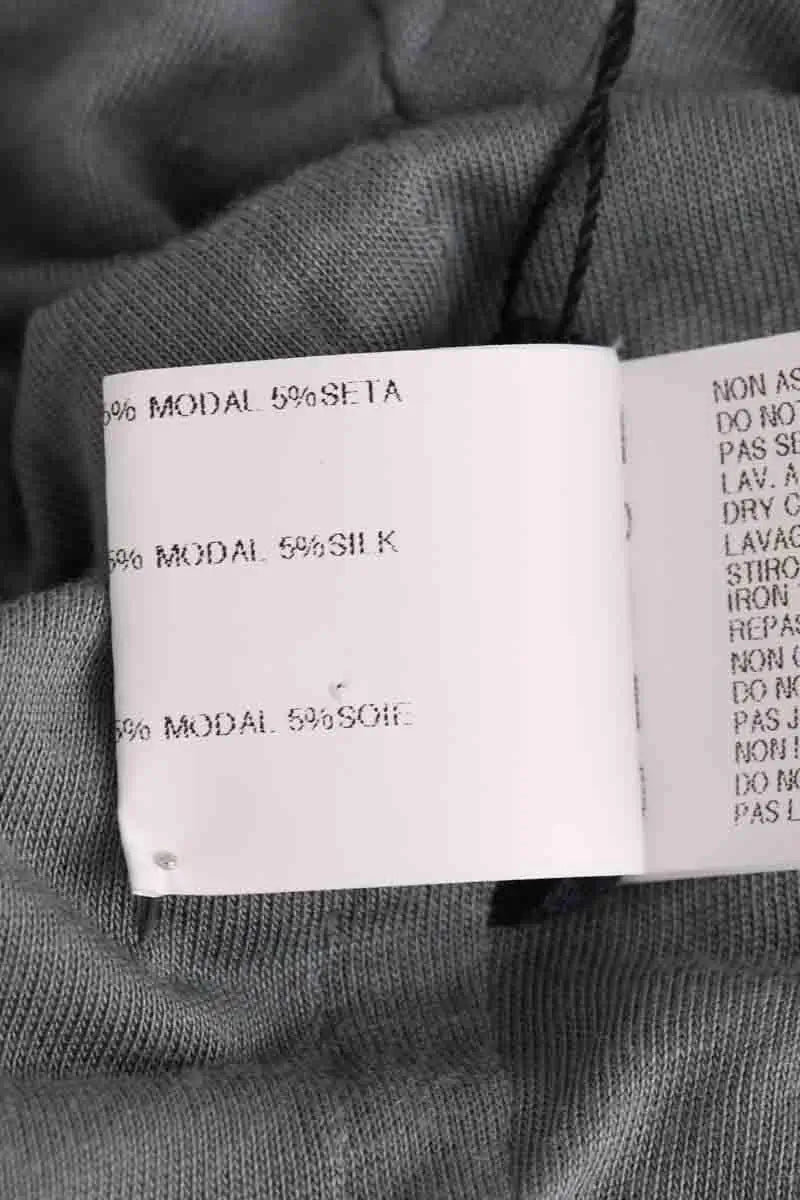 5% MODAL 5%SETA
5% MODAL 5%SILK
5% MODAL 5%SOIE
NON AS
DO NOT
PAS SE
LAV. A
DRY C
LAVAG
STIRO
IRON
REPAS
NON
DO NO
PAS J
NON
DO NO
PAS L